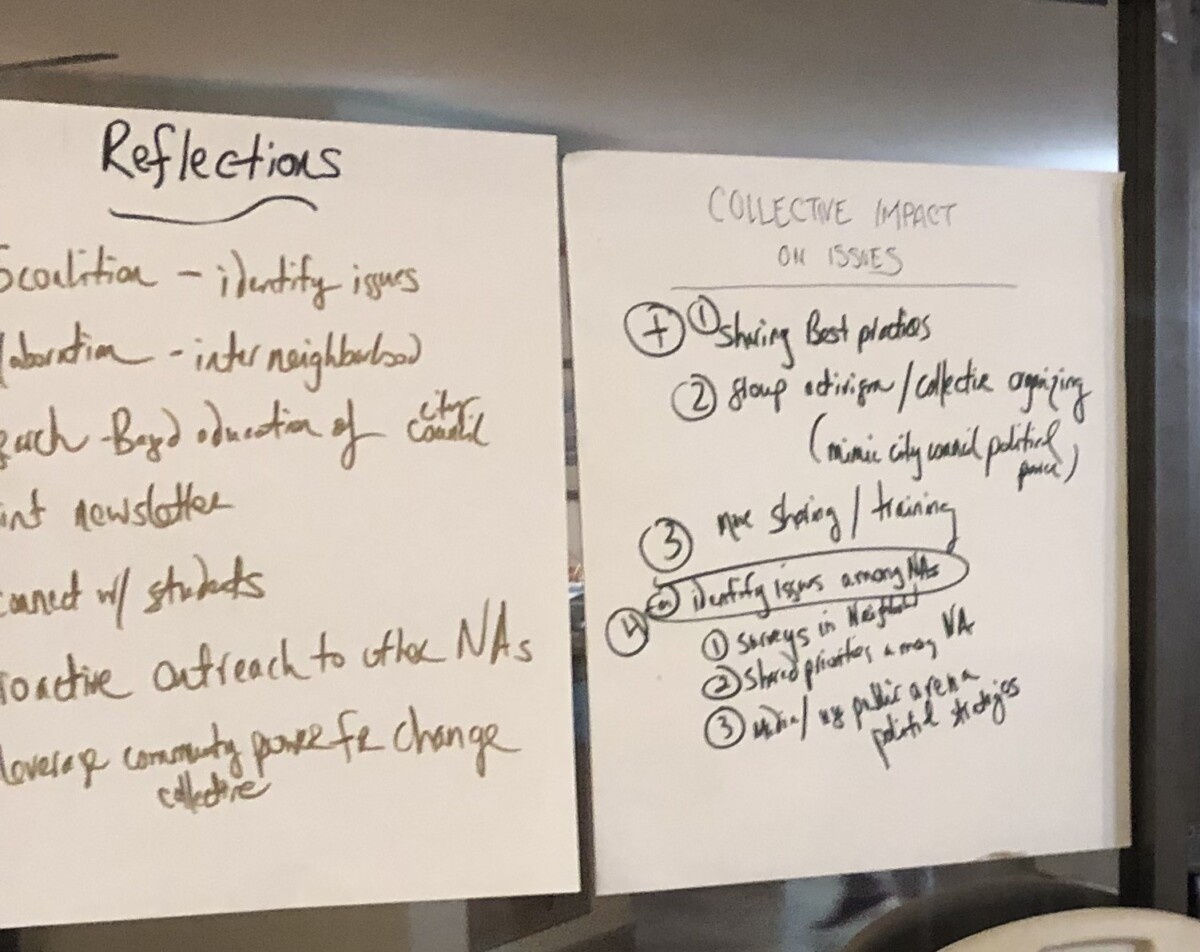 Reflections
coalition - identify issues
laboration - interneighborhood
Based education of city council
int newsletter
connect w/ students
roactive outreach to other NAs
leverage community power for change
collective
COLLECTIVE IMPACT
ON ISSUES
+ ① Sharing Best practices
② group activism / collective organizing
(mimic city council political
power)
③ More sharing / training
④ identify issues among NAs
① Surveys in
② Shared priorities among NA
③ Media / use public arena
political strategies